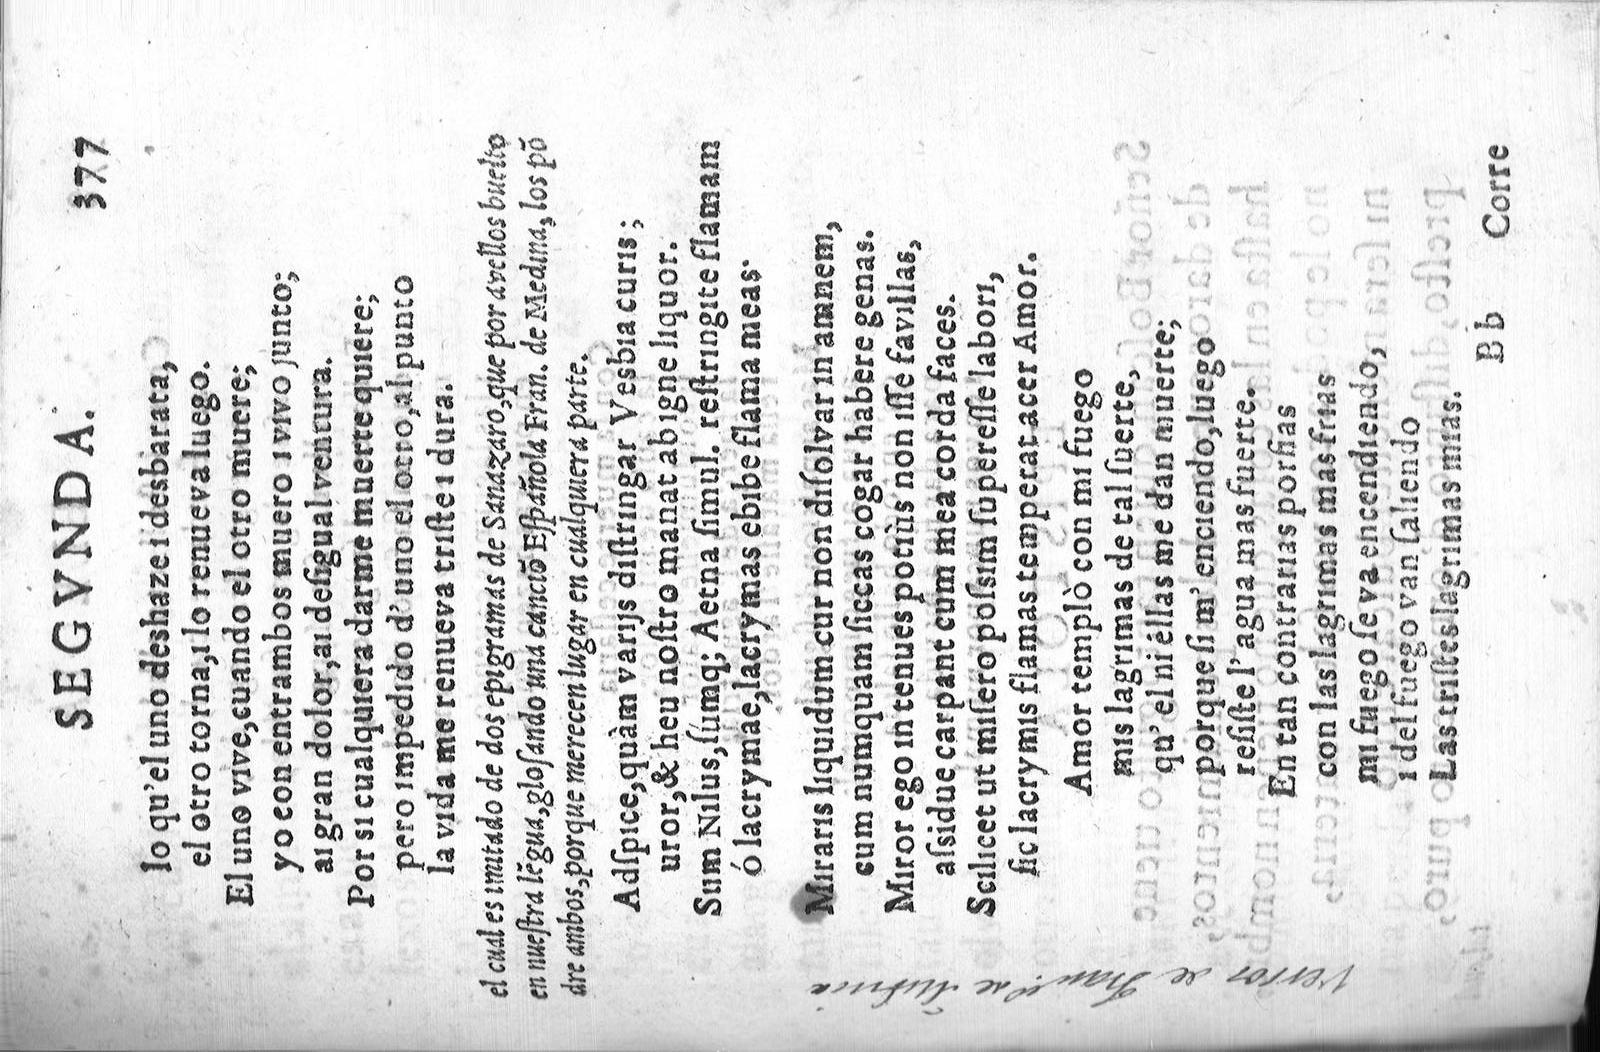 SEGVNDA. 377
lo qu'el uno deshaze i desbarata,
el otro torna, i lo renueva luego.
El uno vive, cuando el otro muere;
yo con entrambos muero i vivo junto;
ai gran dolor, ai desigual ventura.
Por si cualquiera darme muerte quiere;
pero impedido d'uno el otro, al punto
la vida me renueva triſte i dura.
el cual es imitado de dos epigramas de Sanazaro, que por avellos buelto
en nueſtra lẽgua, gloſando una canciõ Eſpañola Fran. de Medina, los põ
dre ambos, porque merecen lugar en cualquiera parte.
Adſpice, quàm varijs diſtringar Vesbia curis;
uror, & heu noſtro manat ab igne liquor.
Sum Nilus, ſumq; Aetna ſimul. reſtringite flamam
ó lacrymae, lacrymas ebibe flama meas.
Miraris liquidum cur non diſolvar in amnem,
cum numquam ſiccas cogar habere genas.
Miror ego in tenues potiùs non iſſe favillas,
aſsidue carpant cum mea corda faces.
Scilicet ut miſero poſsim ſupereſſe labori,
ſic lacrymis flamas temperat acer Amor.
Amor templò con mi fuego
mis lagrimas de tal ſuerte,
qu'el ni éllas me dan muerte;
porque ſi m'enciendo, luego
reſiſte l'agua mas fuerte.
En tan contrarias porfias
con las lagrimas mas frias
mi fuego ſe va encendiendo,
i del fuego van ſaliendo
Las triſtes lagrimas mias.
Bb Corre
Versos de Fran.co de